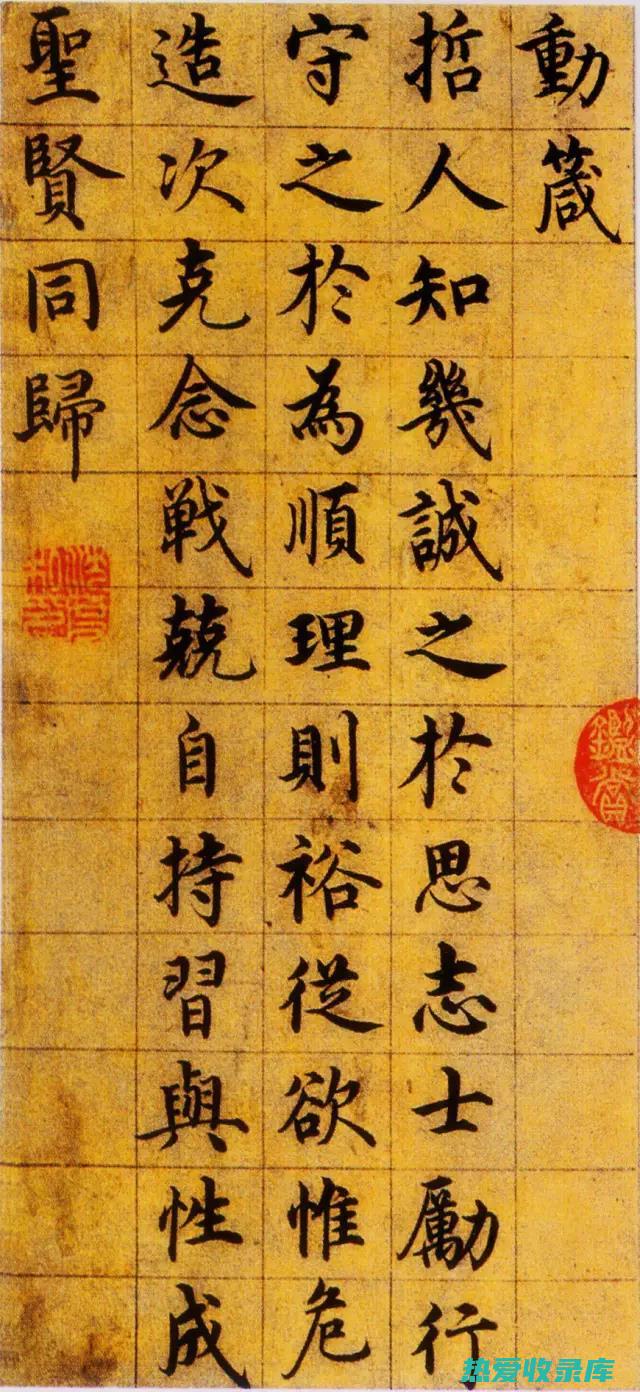 動箴
哲人知幾誠之於思志士勵行
守之於為順理則裕從欲惟危
造次克念戦兢自持習與性成
聖賢同歸
鑑賞
热爱收录库